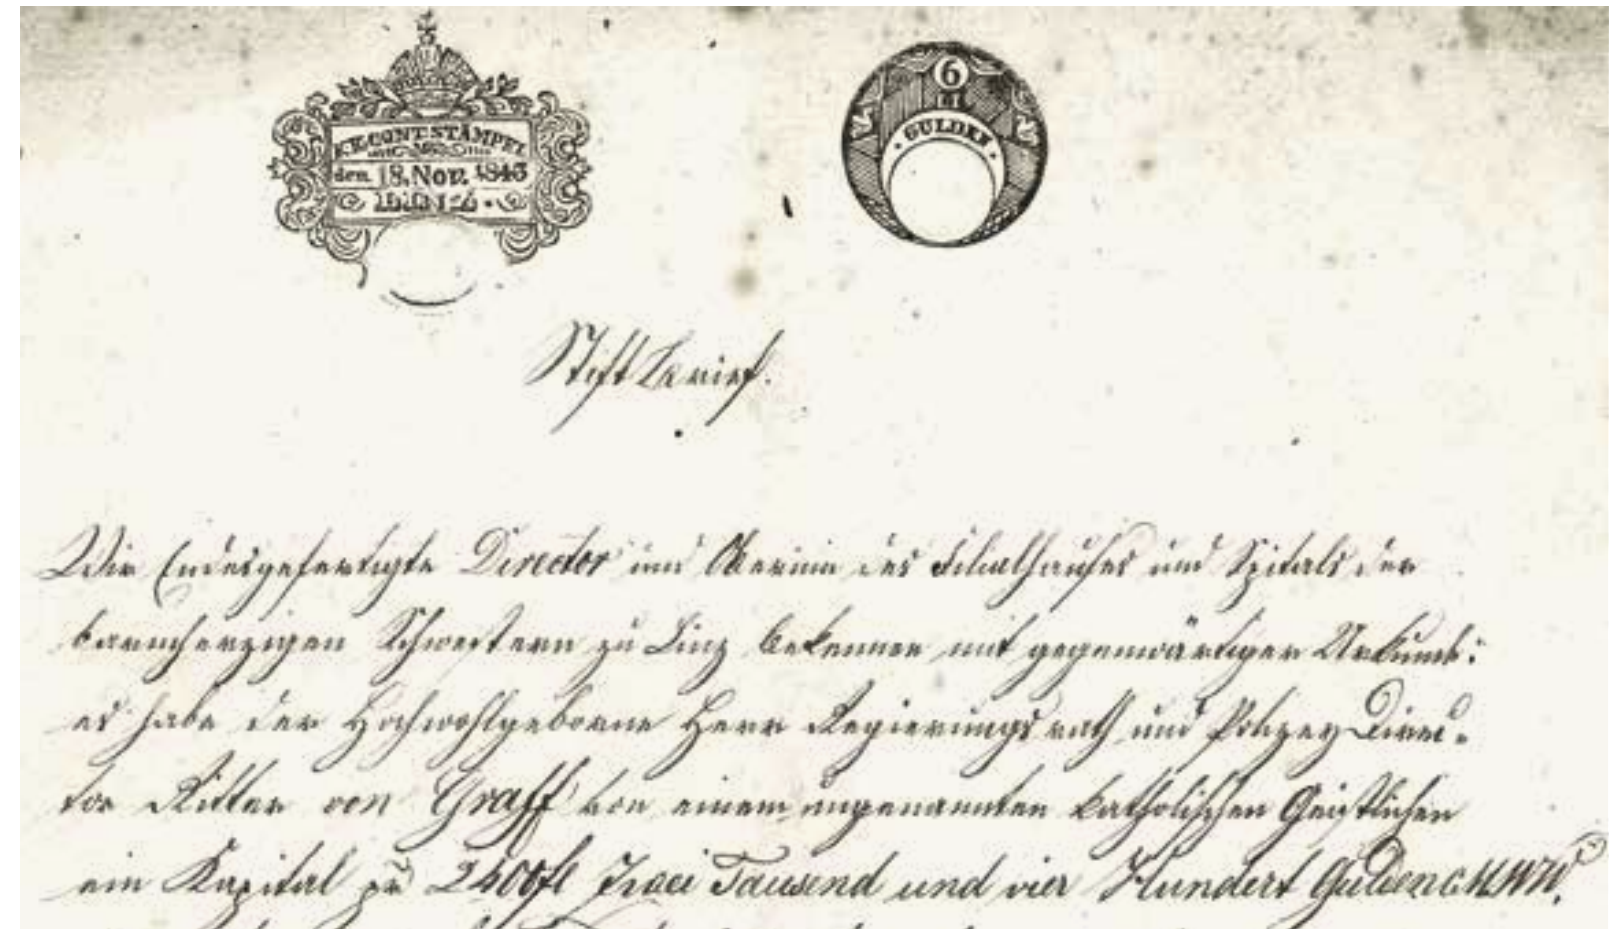 K.K. CONT. STÄMPEL
den 18. Nov. 1843
LINZ
6
GULDEN
Stiftbrief.
Wir Endesgefertigte Director und Oberinn des Filialhauses und Spitals der
barmherzigen Schwestern zu Linz bekennen mit gegenwärtiger Urkunde:
es habe der Hochwohlgeborne Herr Regierungsrath und Polizey Direc-
tor Ritter von Graff von einem ungenannten katholischen Geistlichen
ein Kapital zu 2400fl Zwei Tausend und vier Hundert Gulden C.M.W.W.